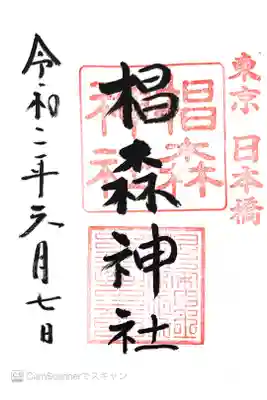 東京 日本橋
椙森神社
椙森
神社
令和二年六月七日
CamScannerでスキャン